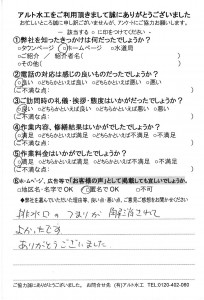 アルト水工をご利用頂きまして誠にありがとうございました
お忙しいところ誠に申し訳ございませんが、アンケートにご協力お願いします。
― 該当する ○ に印をつけてください ―
①弊社を知ったきっかけは何だったでしょうか?
○タウンページ ○ホームページ ○水道局
○ご紹介 / 紹介者名( )
○その他( )
②電話の対応は感じの良いものだったでしょうか?
○良い ○どちらかといえば良い ○どちらかといえば悪い ○悪い
③ご訪問時の礼儀・挨拶・態度はいかがだったでしょうか?
○良い ○どちらかといえば良い ○どちらかといえば悪い ○悪い
④作業内容、修繕結果はいかがでしたでしょうか?
○満足 ○どちらかといえば満足 ○どちらかといえば不満足 ○不満足
⑤作業料金はいかがでしたでしょうか?
○満足 ○どちらかといえば満足 ○どちらかといえば不満足 ○不満足
⑥ホームページ、広告等で「お客様の声」として掲載しても宜しいでしょうか。
○地区名・名字で OK ○匿名で OK ○不可
◆弊社を選んでいただいた理由等、良い点・悪い点、ご意見ご感想をお聞かせください
排水口のつまりが 解消されて
よかったです
ありがとうございました
ご協力誠にありがとうございました。 お問合せ先 (有)アルト水工 TEL.0120-492-060